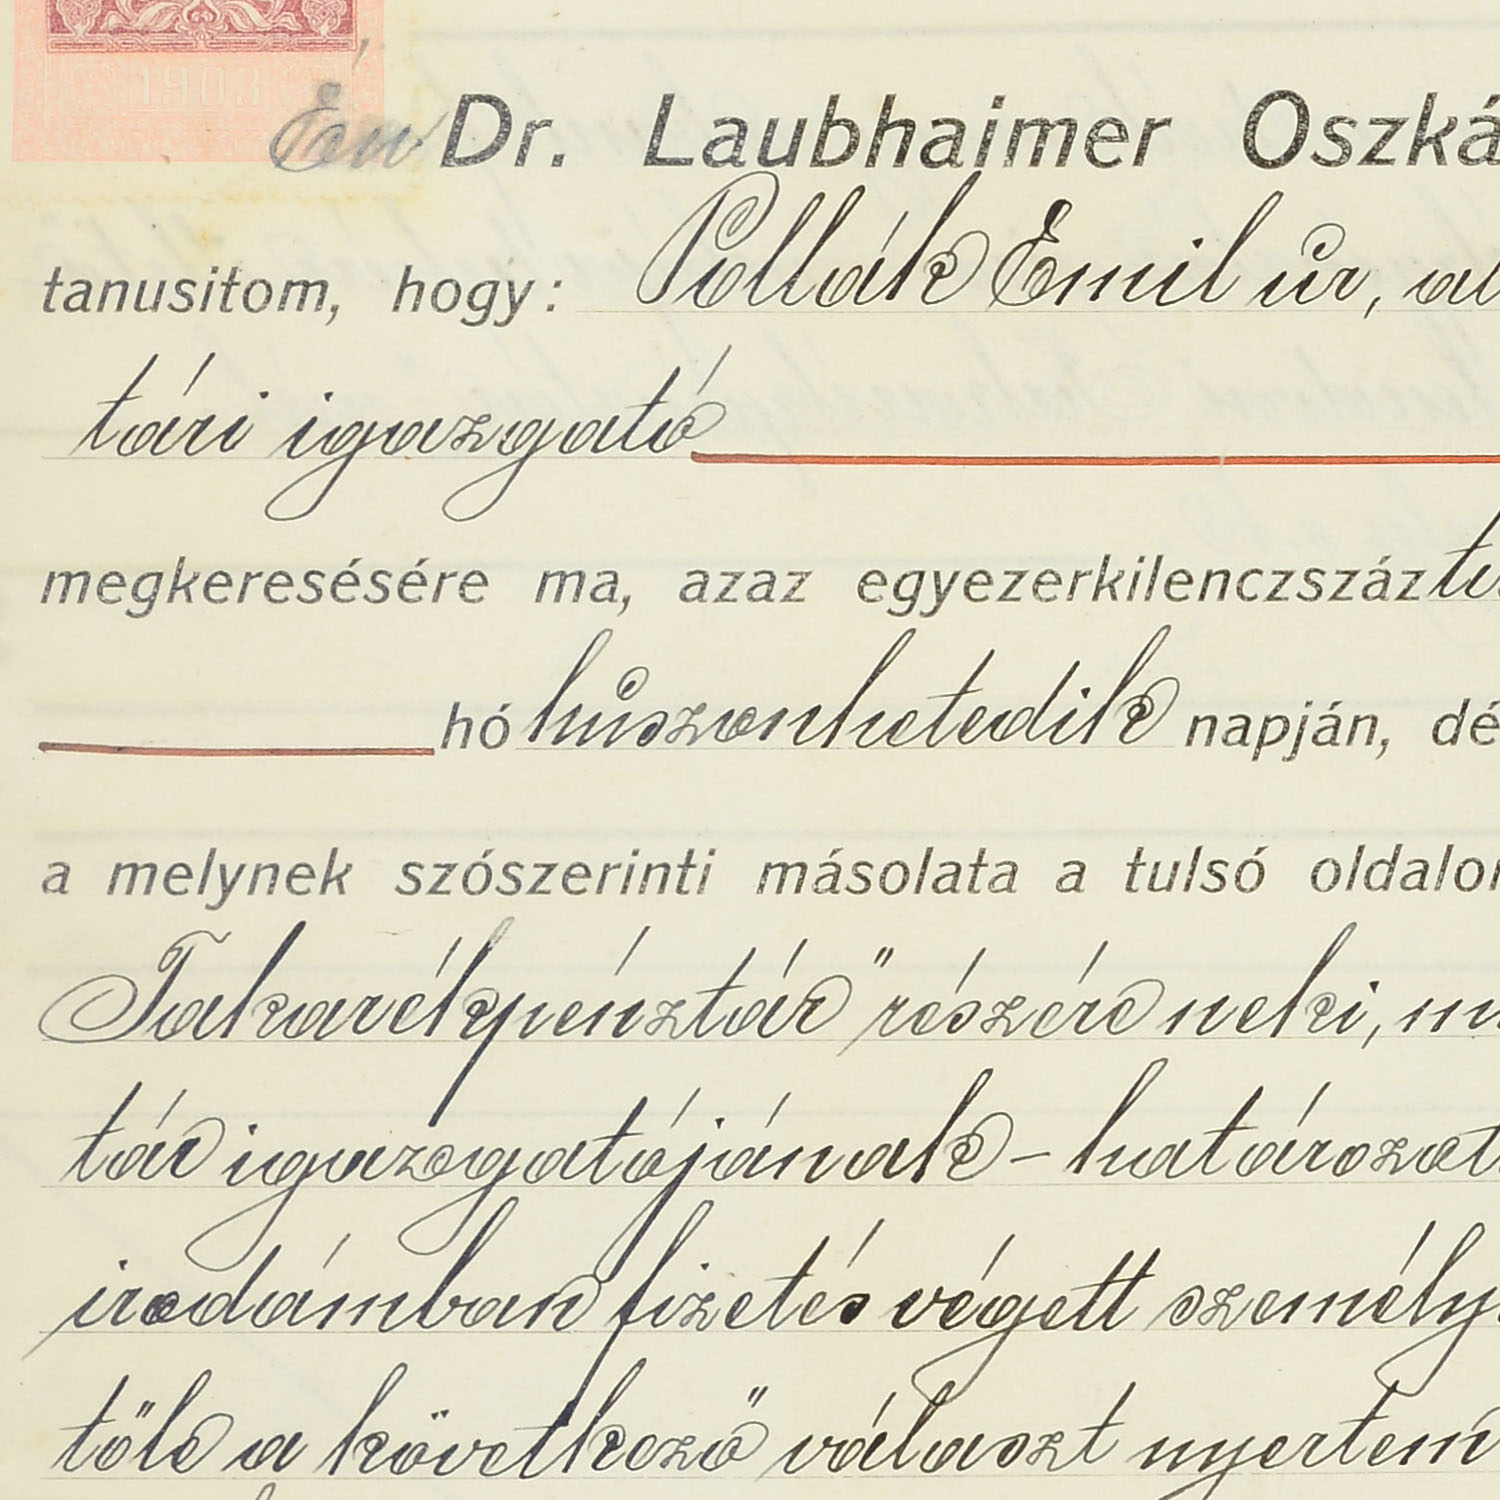 1903
Én Dr. Laubhaimer Oszká
tanusitom, hogy: Pollák Emil úr, al
tári igazgató
megkeresésére ma, azaz egyezerkilenczszáz
hó húszonhetedik napján, dé
a melynek szószerinti másolata a tulsó oldalon
Takarékpénztár" részére neki, m
tár igazgatójának - határozat
irodámban fizetés végett személy
tőle a következő választ nyertem